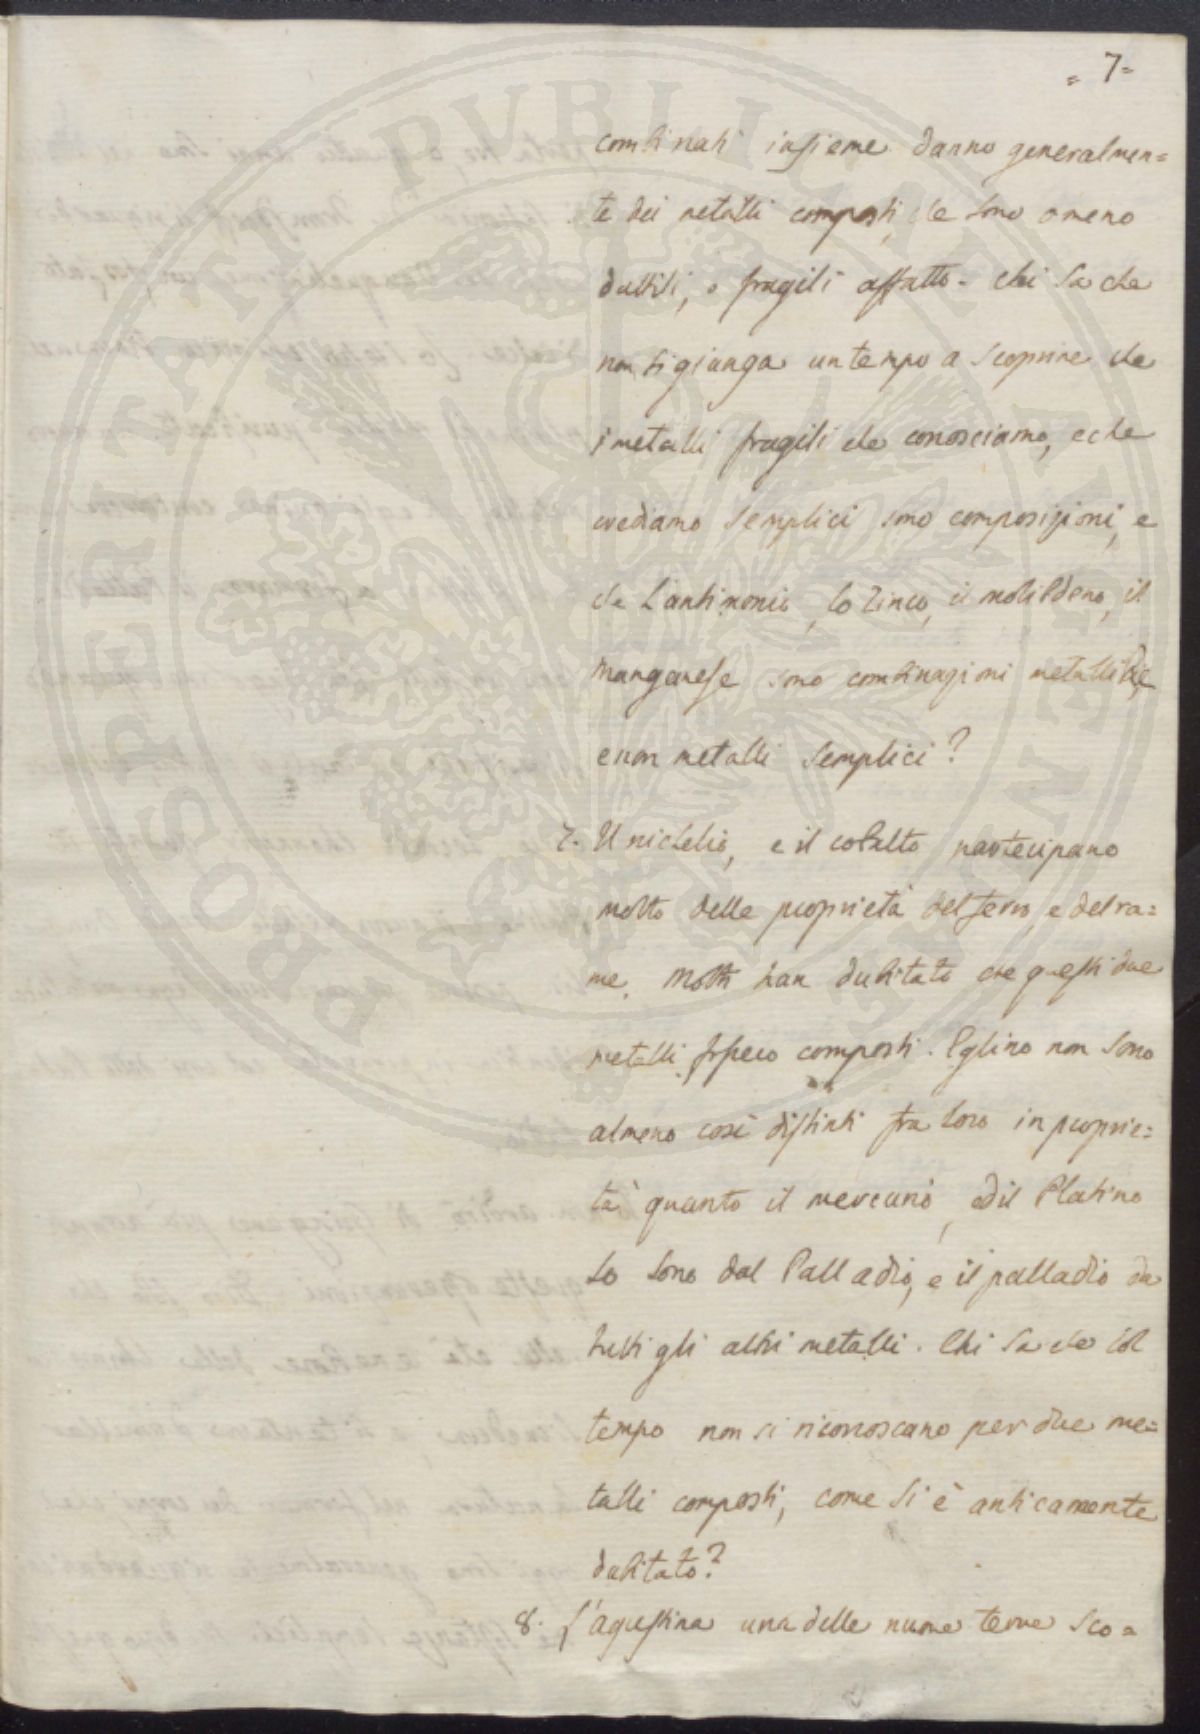 = 7 =
combinati insieme danno generalmen=
te dei metalli composti che sono o meno
duttili, o fragili affatto. chi sa che
non si giunga un tempo a scoprire che
i metalli fragili che conosciamo, e che
crediamo semplici sono composizioni, e
che l'antimonio, lo zinco, il molibdeno, il
manganese sono combinazioni metalliche,
e non metalli semplici?
7. Il nichelio, e il cobalto partecipano
molto delle proprietà del ferro, e del ra=
me. Molti han dubitato che questi due
metalli fossero composti. Eglino non sono
almeno così distinti fra loro in proprie=
tà quanto il mercurio, ed il Platino
lo sono dal Palladio, e il palladio da
tutti gli altri metalli. Chi sa che col
tempo non si riconoscano per due me=
talli composti, come si è anticamente
dubitato?
8. L'agustina una delle nuove terre sco=
PROSPERITATI PVBLICAE AVGENDAE